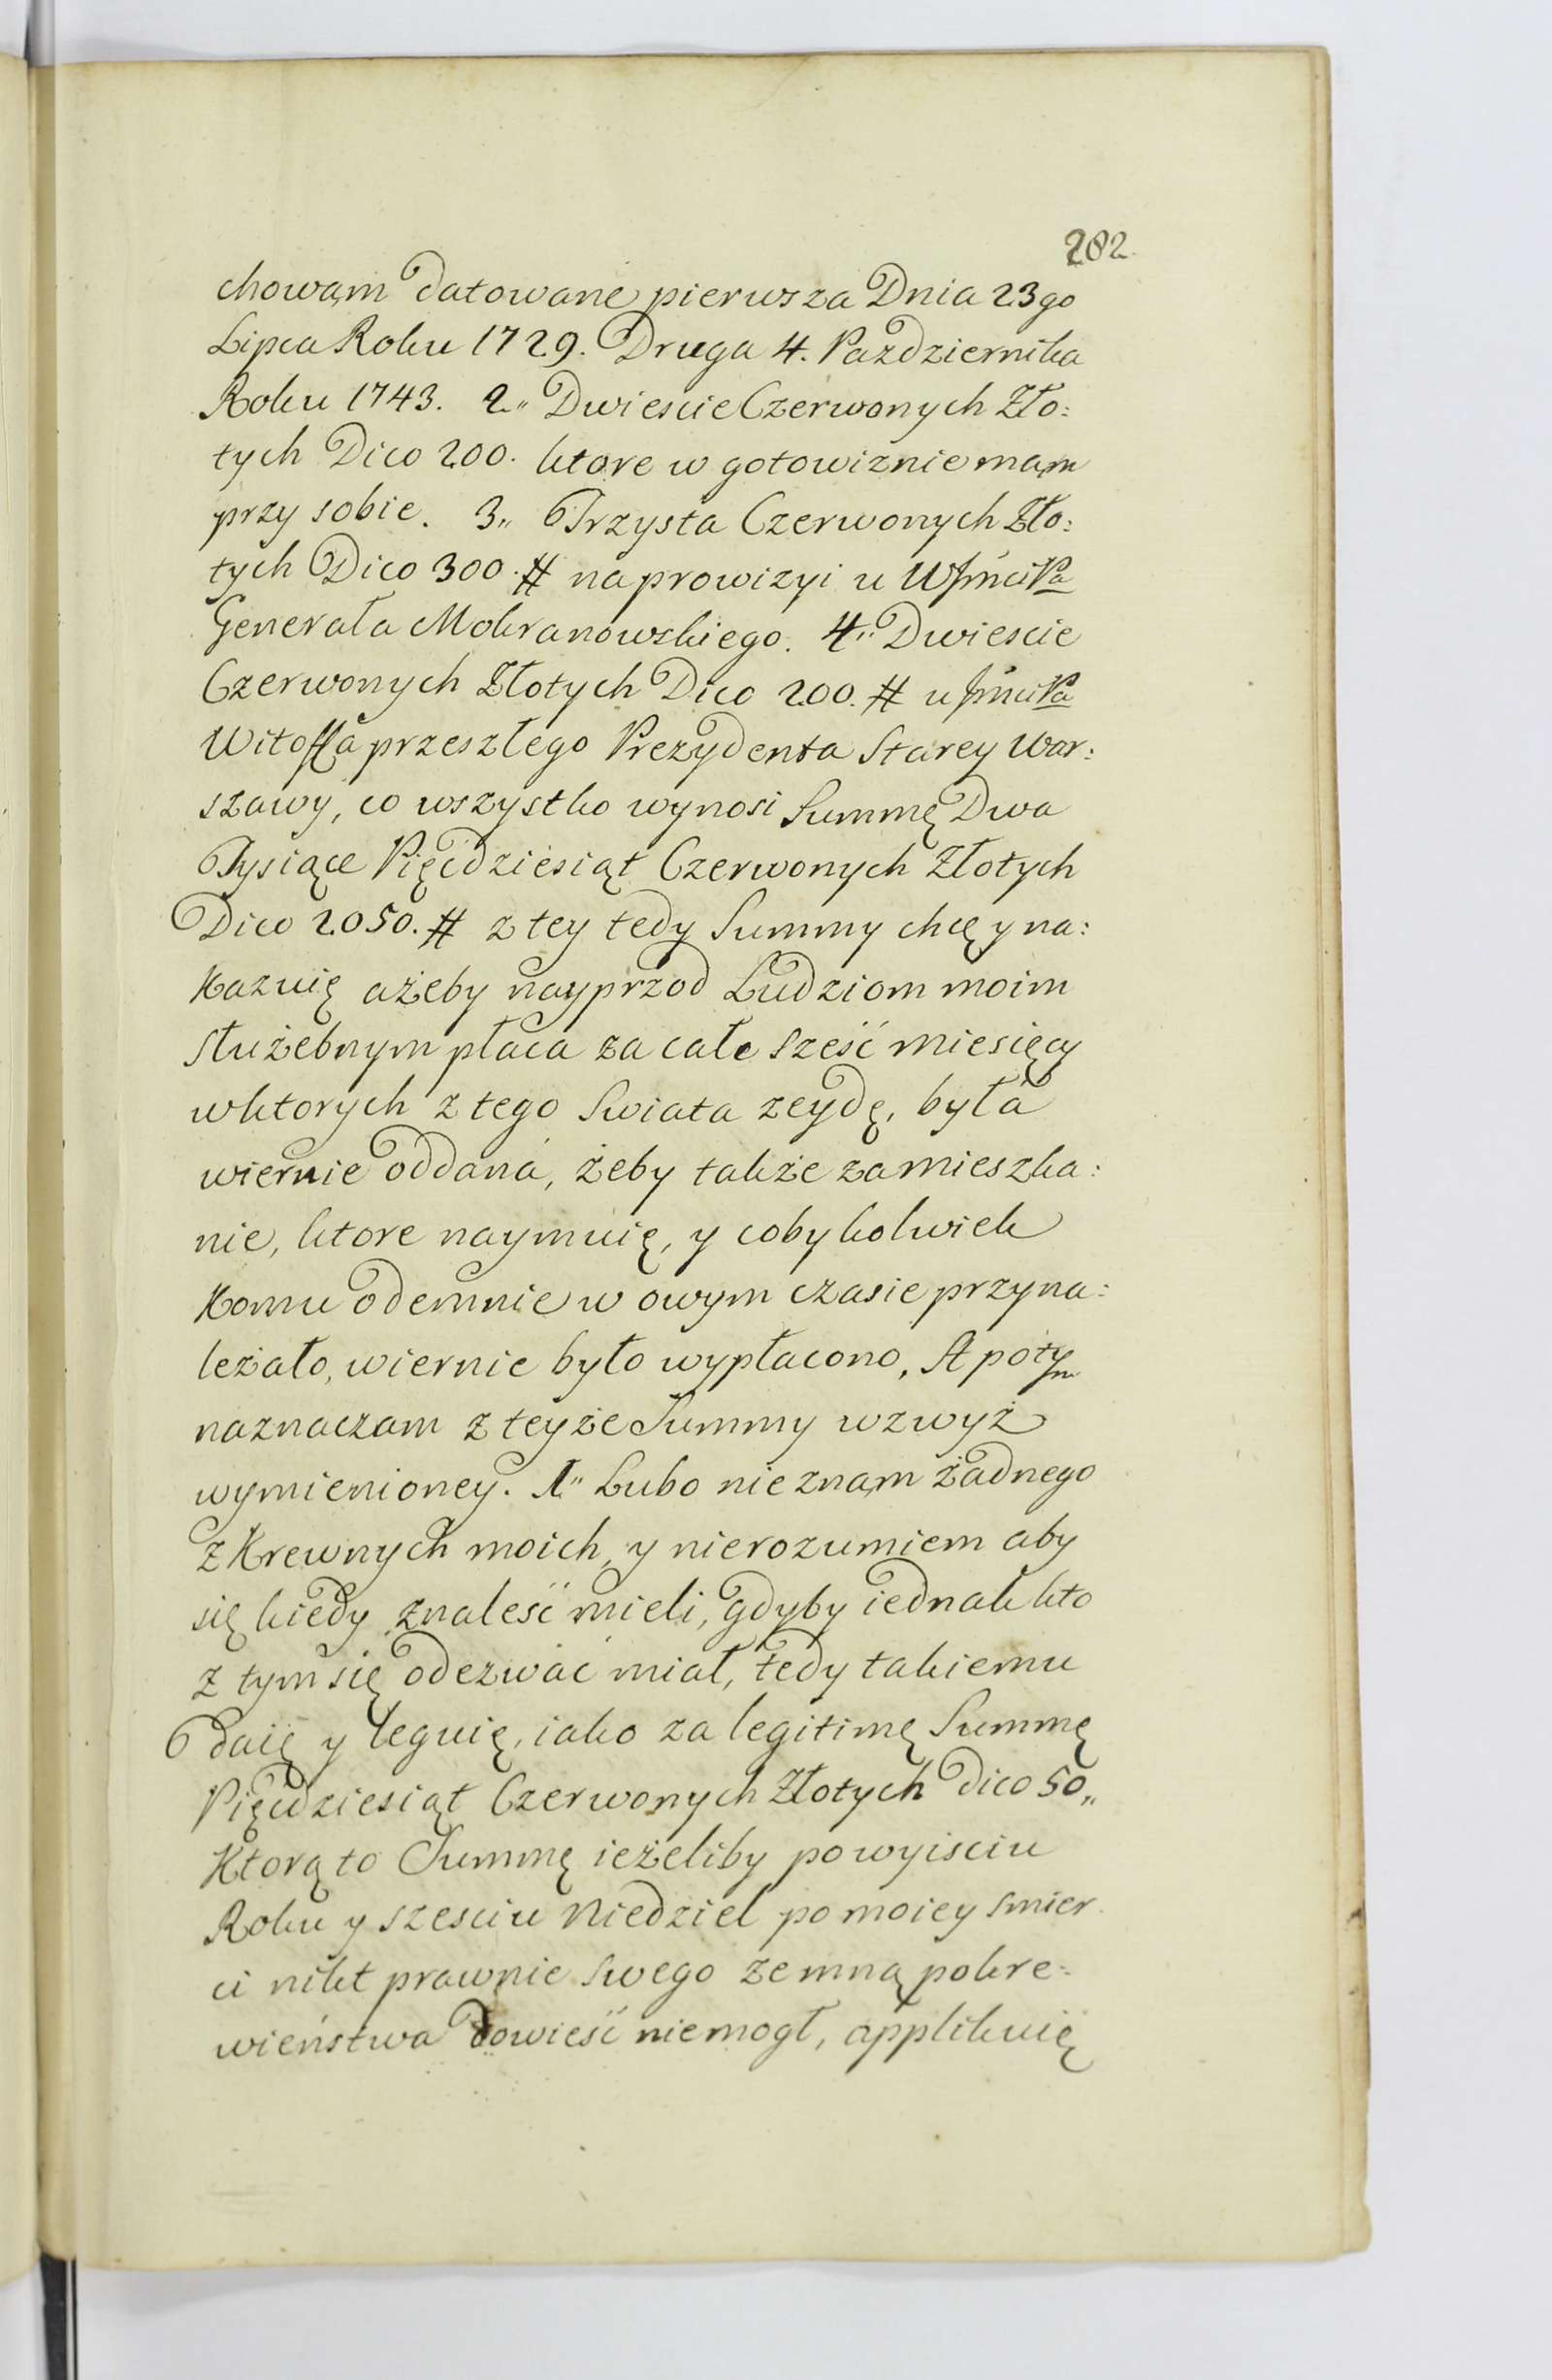 282.
chowam datowane pierwsza Dnia 23go
Lipca Roku 1729. Druga 4. Pazdziernika
Roku 1743. 2„ Dwiescie Czerwonych Zło:
tych Dico 200. ktore w gotowiznie mam
przy sobie. 3„ Trzysta Czerwonych Zło:
tych Dico 300. # na prowizyi u
Generała Mokranowskiego. 4„ Dwiescie
Czerwonych Złotych Dico 200. # u
Witoffa przeszłego Prezydenta Starey War:
szawy, co wszystko wynosi Summę Dwa
Tysiące Pięcdziesiąt Czerwonych Złotych
Dico 2050. # z tey tedy Summy chcę y na:
kazuię ażeby nayprzod Ludziom moim
służebnym płaca za całe sześć miesięcy
wktorych z tego Swiata zeydę, była
wiernie oddana, żeby także zamieszka:
nie, ktore naymuię, y cobykolwiek
komu odemnie w owym czasie przyna:
leżało, wiernie było wypłacono, A potym
naznaczam z teyże Summy wzwyż
wymienioney. 1„ Lubo nieznam żadnego
z Krewnych moich, y nierozumiem aby
się kiedy znaleść mieli, gdyby iednak kto
z tym się odezwać miał, tedy takiemu
daię y leguię, iako za legitimę Summę
Pięcdziesiąt Czerwonych Złotych Dico 50„
Ktorą to Summę ieżeliby po wyisciu
Roku y szesciu Niedziel po moiey smier
ci nikt prawnie swego zemną pokre:
wieństwa dowieść niemogł, applikuię